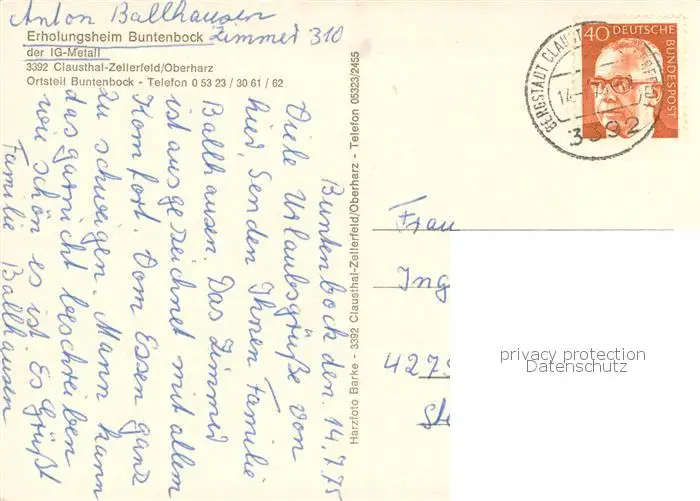 Anton Ballhausen
Erholungsheim Buntenbock Zimmer 310
der IG-Metall
3392 Clausthal-Zellerfeld/Oberharz
Ortsteil Buntenbock - Telefon 0 53 23 / 30 61 / 62
Buntenbock den. 14.7.75
Viele Urlaubsgrüße von
hier Senden Ihnen Familie
Ballhausen. Das Zimmer
ist ausgezeichnet mit allem
Komfort. Vom Essen ganz
zu schweigen. Mann kann
das garnicht beschreiben
wie schön es ist. Es Grüßt
Familie Ballhausen
Harzfoto Barke - 3392 Clausthal-Zellerfeld/Oberharz - Telefon 05323/2455
40 DEUTSCHE
BUNDESPOST
BERGSTADT
14.
3392
Frau
Ing
427
privacy protection
Datenschutz